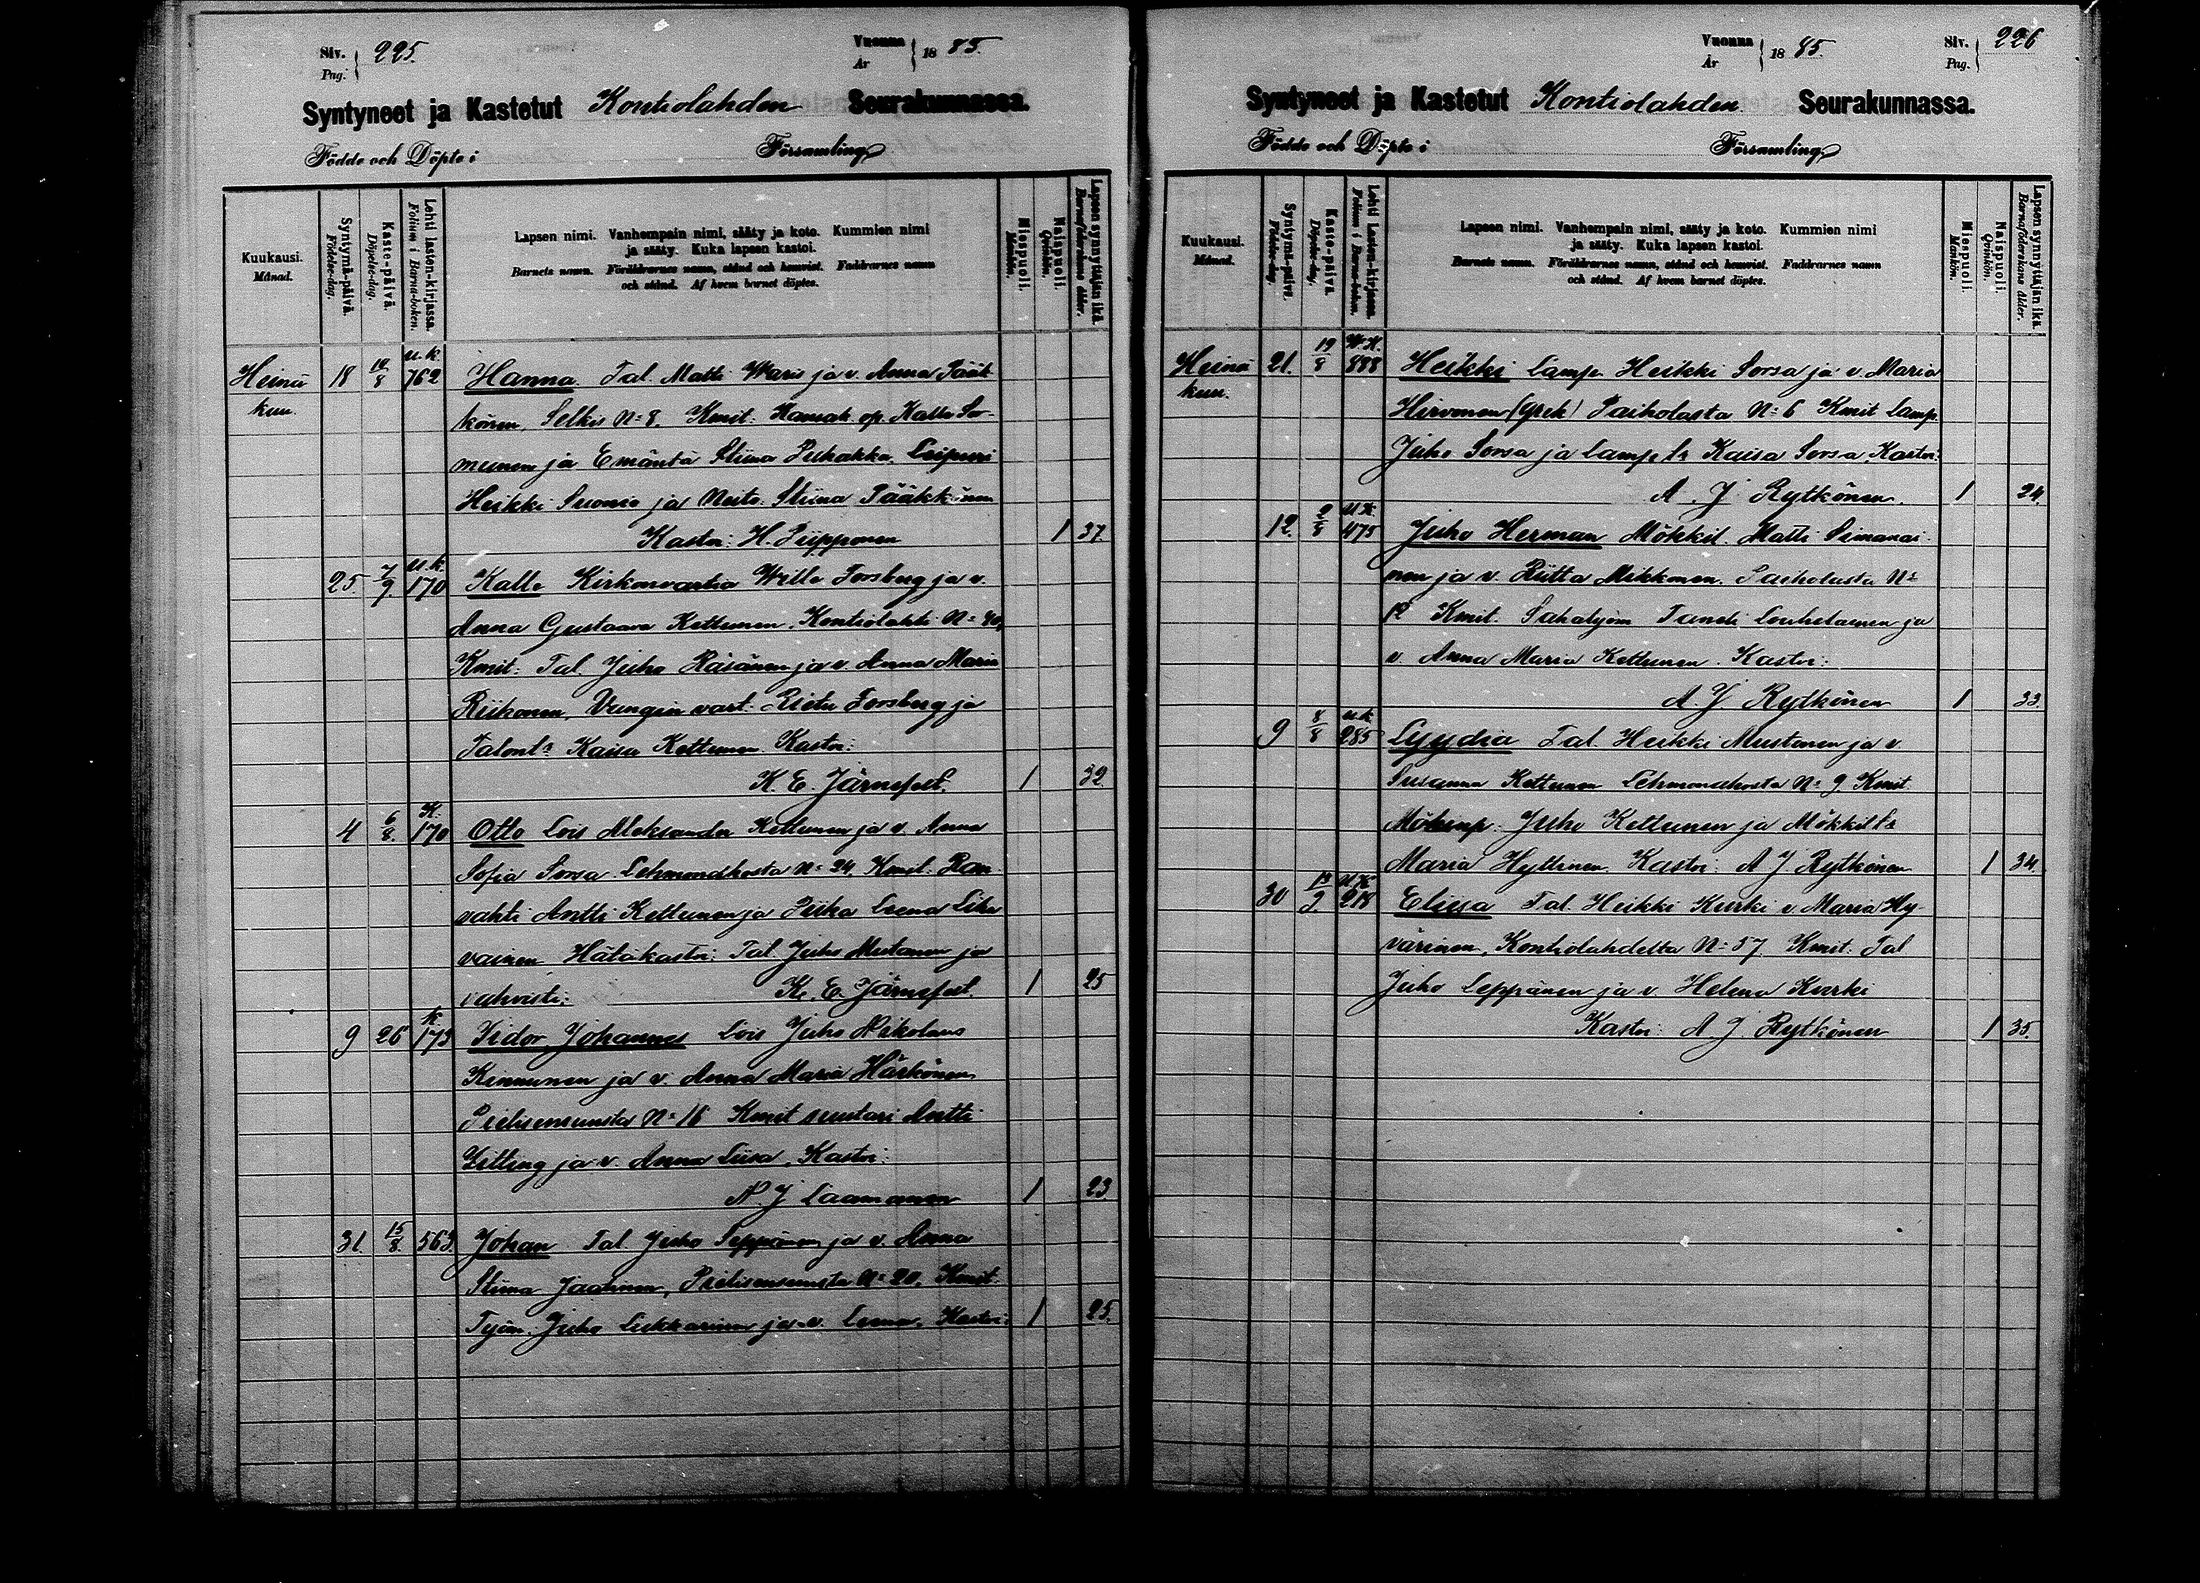 Siv. Pag. 225. Vuonna År 1885.
Syntyneet ja Kastetut Kontiolahden Seurakunnassa.
Födde och Döpte i Församling
Kuukausi. Månad.
Syntymä-päivä. Födelse-dag.
Kaste-päivä. Döpelse-dag.
Lehti lasten-kirjassa. Folium i Barna-boken.
Lapsen nimi. Vanhempain nimi, sääty ja koto. Kummien nimi
ja sääty. Kuka lapsen kastoi.
Barnets namn. Föräldrarnes namn, stånd och hemvist. Faddrarnes namn
och stånd. Af hvem barnet döptes.
Miespuoli. Mankön.
Naispuoli. Qvinkön.
Lapsen synnyttäjän ikä. Barnaföderskans ålder.
u.k.
Heinä 18 19/8 762 Hanna Tal. Matti Waris ja v. Anna Pääk
kuu. könen, Selkis N:8. Kmit: Kansak. op. Kalle So-
meinen ja Emäntä Stiina Puhakka,
Heikki Suonio ja Neito Stiina Pääkkönen
Kastoi: H. Piipponen 1 37
u.k.
25. 7/9 170 Kalle Kirkonvartia Wille Forsberg ja v.
Anna Gustaava Kettunen, Kontiolahti N:40,
Kmit: Tal. Juho Räsänen ja v. Anna Maria
Riikonen, Vangin vart. Rietu Forsberg ja
Talont:r Kaisa Kettunen Kastoi:
K. E. Järnefelt. 1 32.
K.
4 6/8. 170 Otto Lois Aleksander Kettunen ja v. Anna
Sofia Sorsa Lehmonahosta N:24. Kmit:
vahti Antti Kettunen ja Piika Leena
vainen Hätäkastoi: Tal Juho Mutanen ja
vahvisti: K. E. Järnefelt. 1 25
K
9 26 173 Isidor Johannes Lois Juho Nikolaus
Kinnunen ja v. Anna Maria Härkönen
Pielisensuusta N:18 Kmit suutari Antti
Zitting ja v. Anna Liisa, Kastoi:
N. J. Laamanen 1 23
31. 15/8. 563 Johan Tal Juho Seppänen ja v. Anna
Stiina Jaatinen, Pielisensuusta N:20, Kmit
Työm. Juho Lukkarinen ja v. Leena, Kastoi: 1 25.
Vuonna År 1885. Siv. Pag. 226
Syntyneet ja Kastetut Kontiolahden Seurakunnassa.
Födde och Döpte i Församling
Kuukausi. Månad.
Syntymä-päivä. Födelse-dag.
Kaste-päivä. Döpelse-dag.
Lehti Lasten-kirjassa. Folium i Barna-boken.
Lapsen nimi. Vanhempain nimi, sääty ja koto. Kummien nimi
ja sääty. Kuka lapsen kastoi.
Barnets namn. Föräldrarnes namn, stånd och hemvist. Faddrarnes namn
och stånd. Af hvem barnet döptes.
Miespuoli. Mankön.
Naispuoli. Qvinkön.
Lapsen synnyttäjän ikä. Barnaföderskans ålder.
Heinä 21. 19/8 888 Heikki Lamp. Heikki Sorsa ja v. Maria
kuu. Hirvonen (grek) Paiholasta N:6 Kmit Lamp.
Juho Sorsa ja Lamp. t:r Kaisa Sorsa, Kastoi:
A. J. Rytkönen. 1 24.
U K
12. 2/8 475 Juho Herman Mökkil. Matti Simanai
nen ja v. Riitta Mikkonen. Paiholasta N:
12 Kmit. Sahatyöm Taneli Louhelainen ja
v. Anna Maria Kettunen. Kastoi:
A. J. Rytkönen 1 33.
u.k
9 8/8 285 Lyydia Tal. Heikki Mustonen ja v.
Susanna Kettunen Lehmonahosta N:9 Kmit.
Juho Kettunen ja Mökkil t:r
Maria Hyttinen. Kastoi: A J Rytkönen 1 34.
U K
30 13/9. 218 Eliesa Tal. Heikki Kurki v. Maria Hy-
värinen, Kontiolahdelta N:57. Kmit: Tal
Juho Leppänen ja v. Helena Kurki
Kastoi: A. J. Rytkönen 1 35.